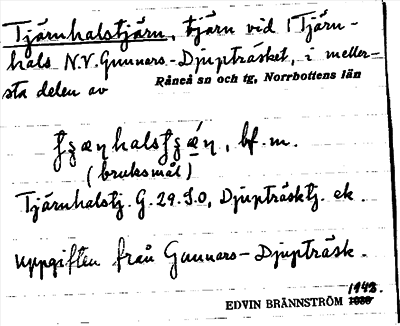 Tjärnhalstjärn, tjärn vid 1 Tjärn-
hals N.V. Gunnars-Djupträsket, i meller-
sta delen av Råneå sn och tg, Norrbottens län
bf. m.
(bruksmål)
Tjärnhalstj. G.29.S.O, Djupträsktj. ek.
Uppgiften från Gunnars-Djupträsk.
1942.
EDVIN BRÄNNSTRÖM 1939